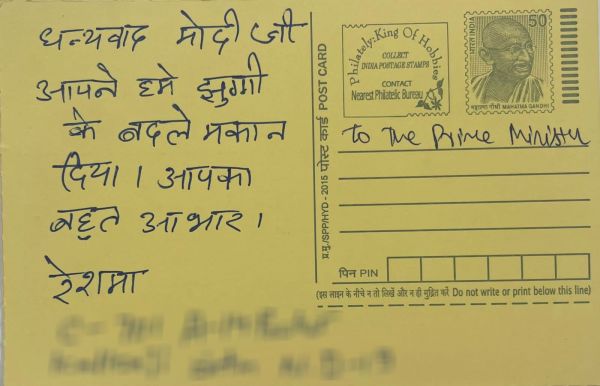 धन्यवाद मोदी जी
आपने हमे झुग्गी
के बदले मकान
दिया। आपका
बहुत आभार।
रेशमा
Philately-King Of Hobbies
COLLECT
INDIA POSTAGE STAMPS
CONTACT
Nearest Philatelic Bureau
भारत INDIA
50
महात्मा गांधी MAHATMA GANDHI
प्र.मु./SPP/HYD - 2015 पोस्ट कार्ड POST CARD
To The Prime Minister
पिन PIN
(इस लाइन के नीचे न तो लिखें और न ही मुद्रित करें Do not write or print below this line)